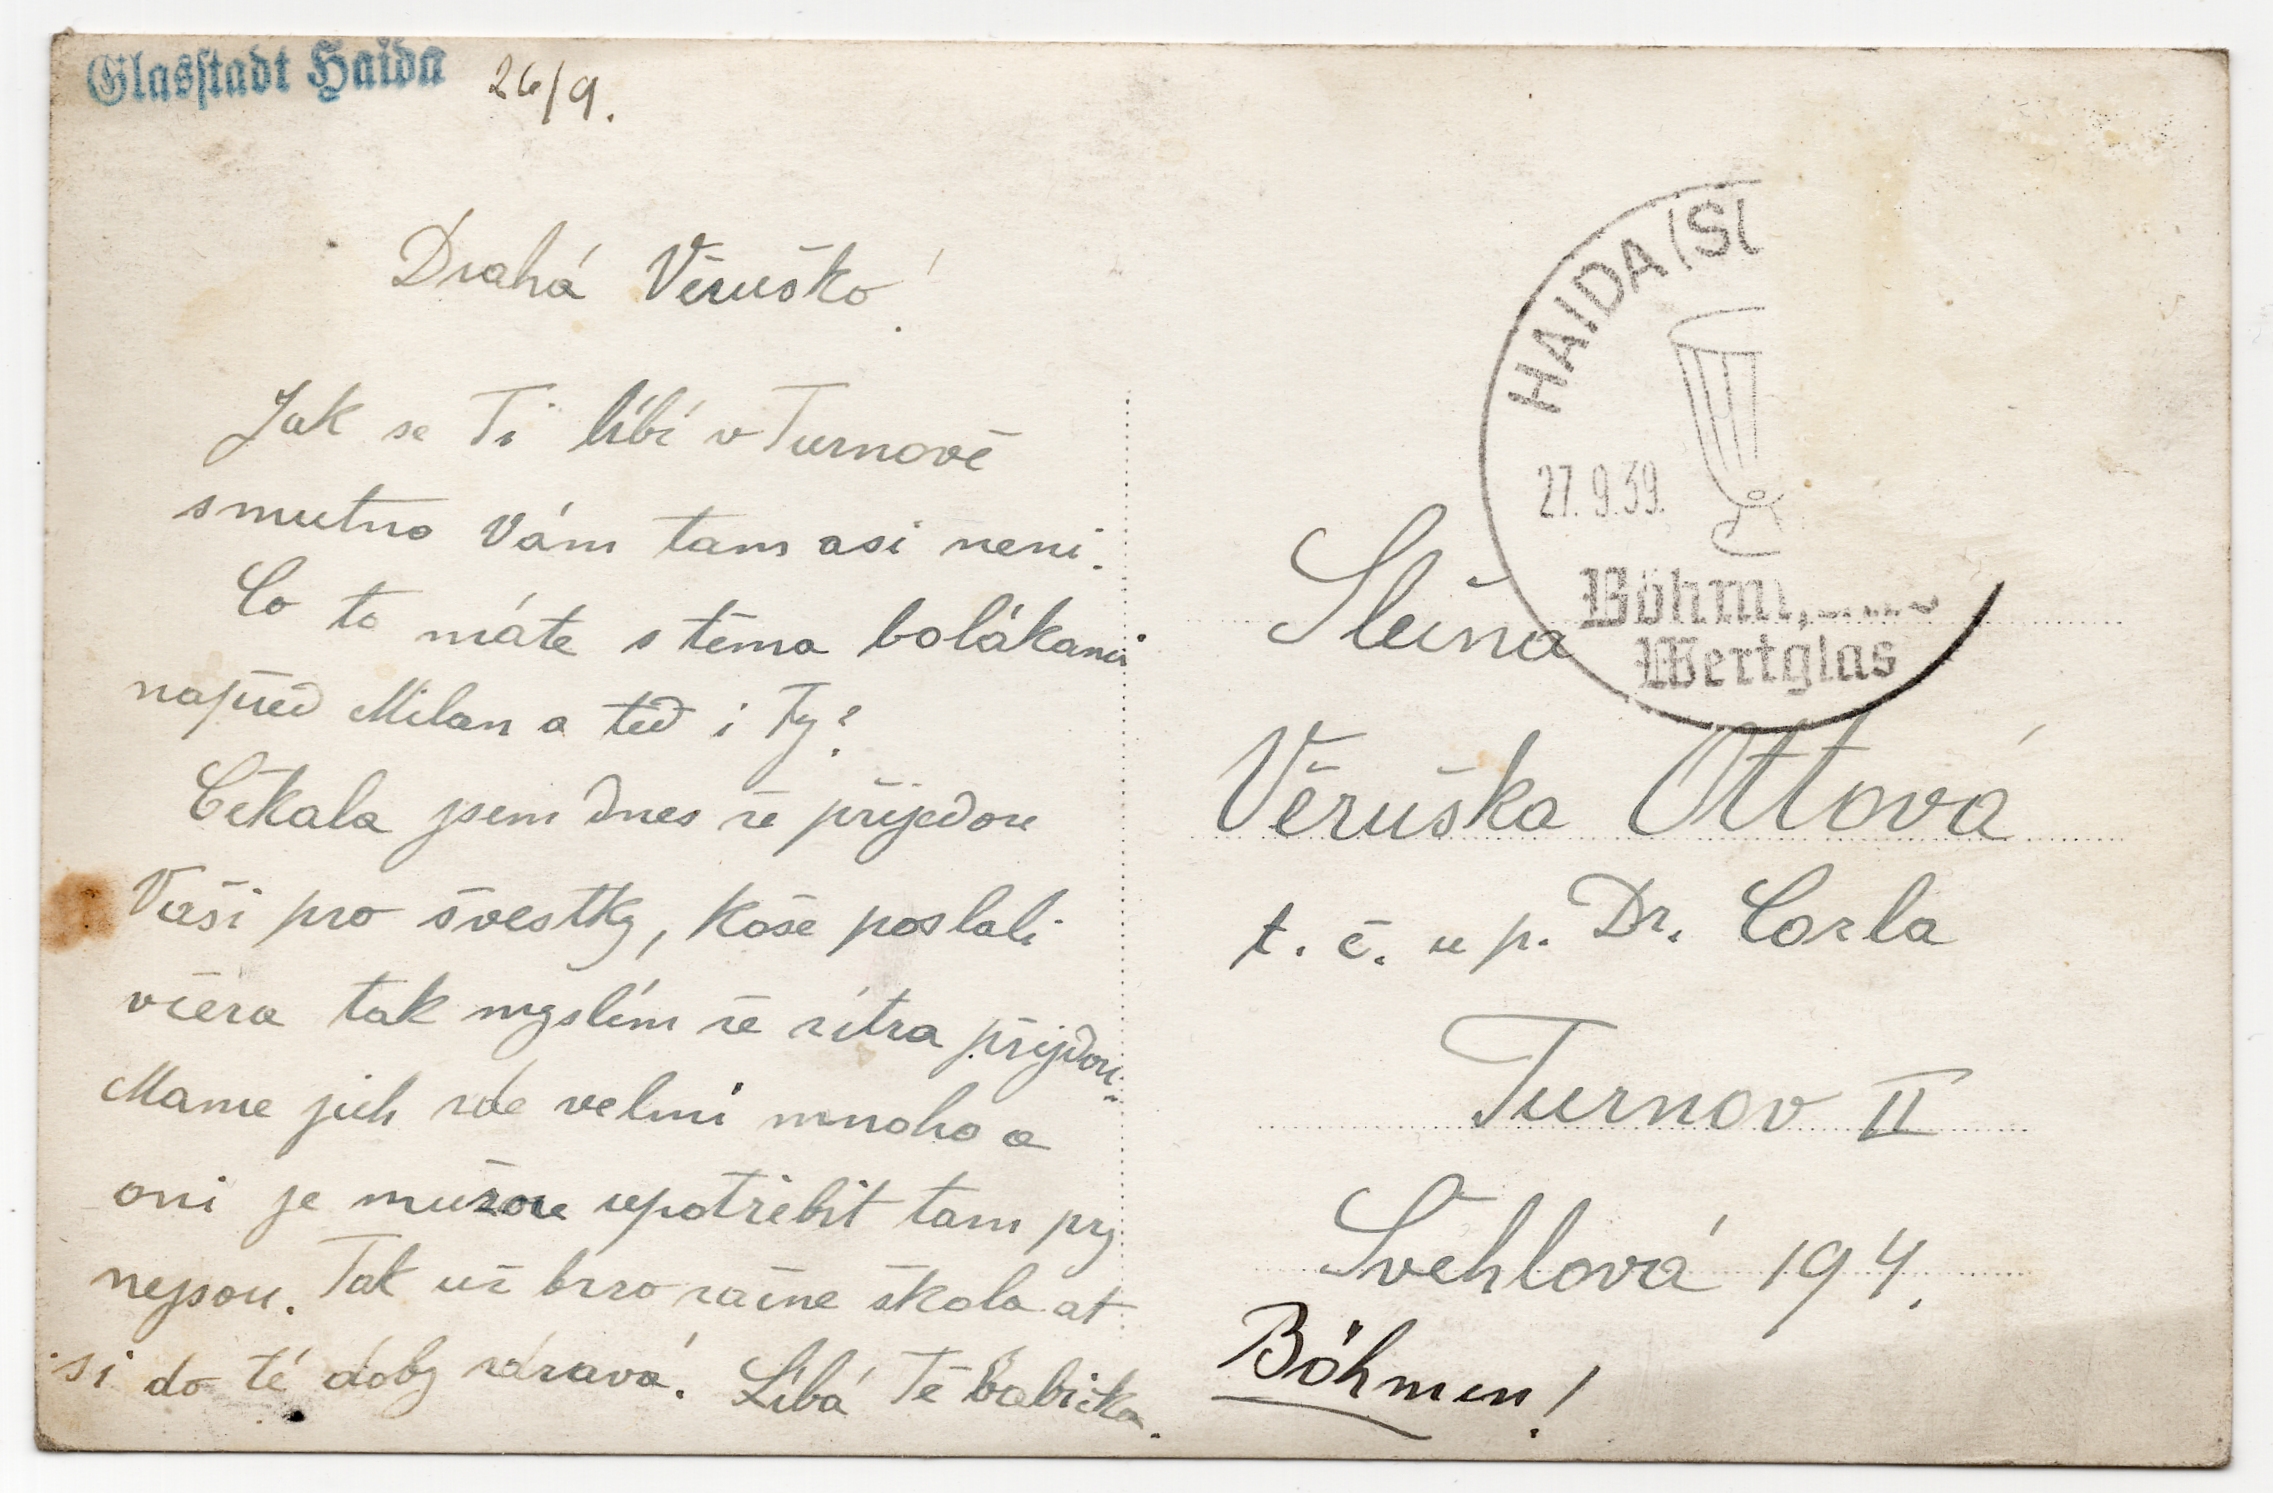 Glasstadt Haida 26/9.
Drahá Věruško!
Jak se Ti líbí v Turnově
smutno Vám tam asi neni.
Co to máte s těma bolákami
napřed Milan a teď i Ty?
Čekala jsem dnes že přijedou
Vaši pro švestky, koše poslali
včera tak myslím že zítra přijdou.
Mame jich zde velmi mnoho a
oni je můžou upotřebit tam prý
nejsou. Tak už brzo začne škola at
si do té doby zdravá. Líbá Tě babička.
HAIDA (SU
27.9.39.
Böhm
Wertglas
Slečna
Věruška Ottová
t. č. u p. Dr. Corla
Turnov II
Švehlová 194.
Böhmen!